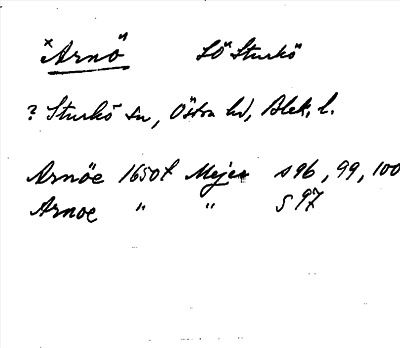 ˣArnö SÖ Sturkö
? Sturkö sn, Östra hd, Blek. l.
Arnöe 1650t Mejer s 96, 99, 100
Arnoe " " S 97